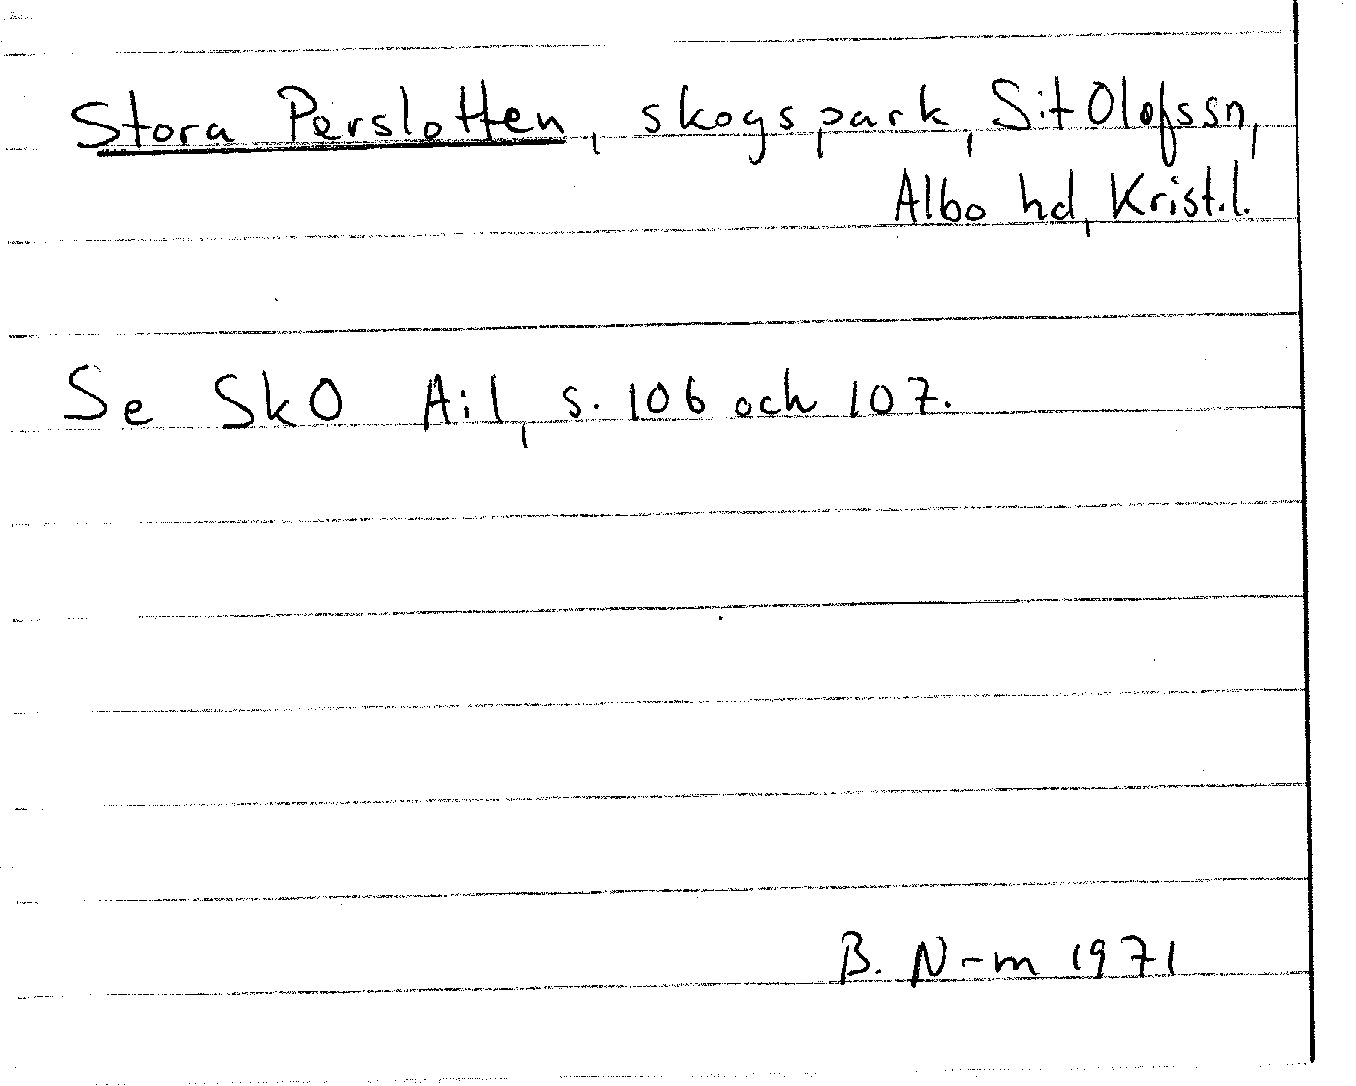 Stora Perslotten, skogspark, S:t Olofs sn,
Albo hd, Krist.l.
Se SkO A:1, s. 106 och 107.
B. N-m 1971